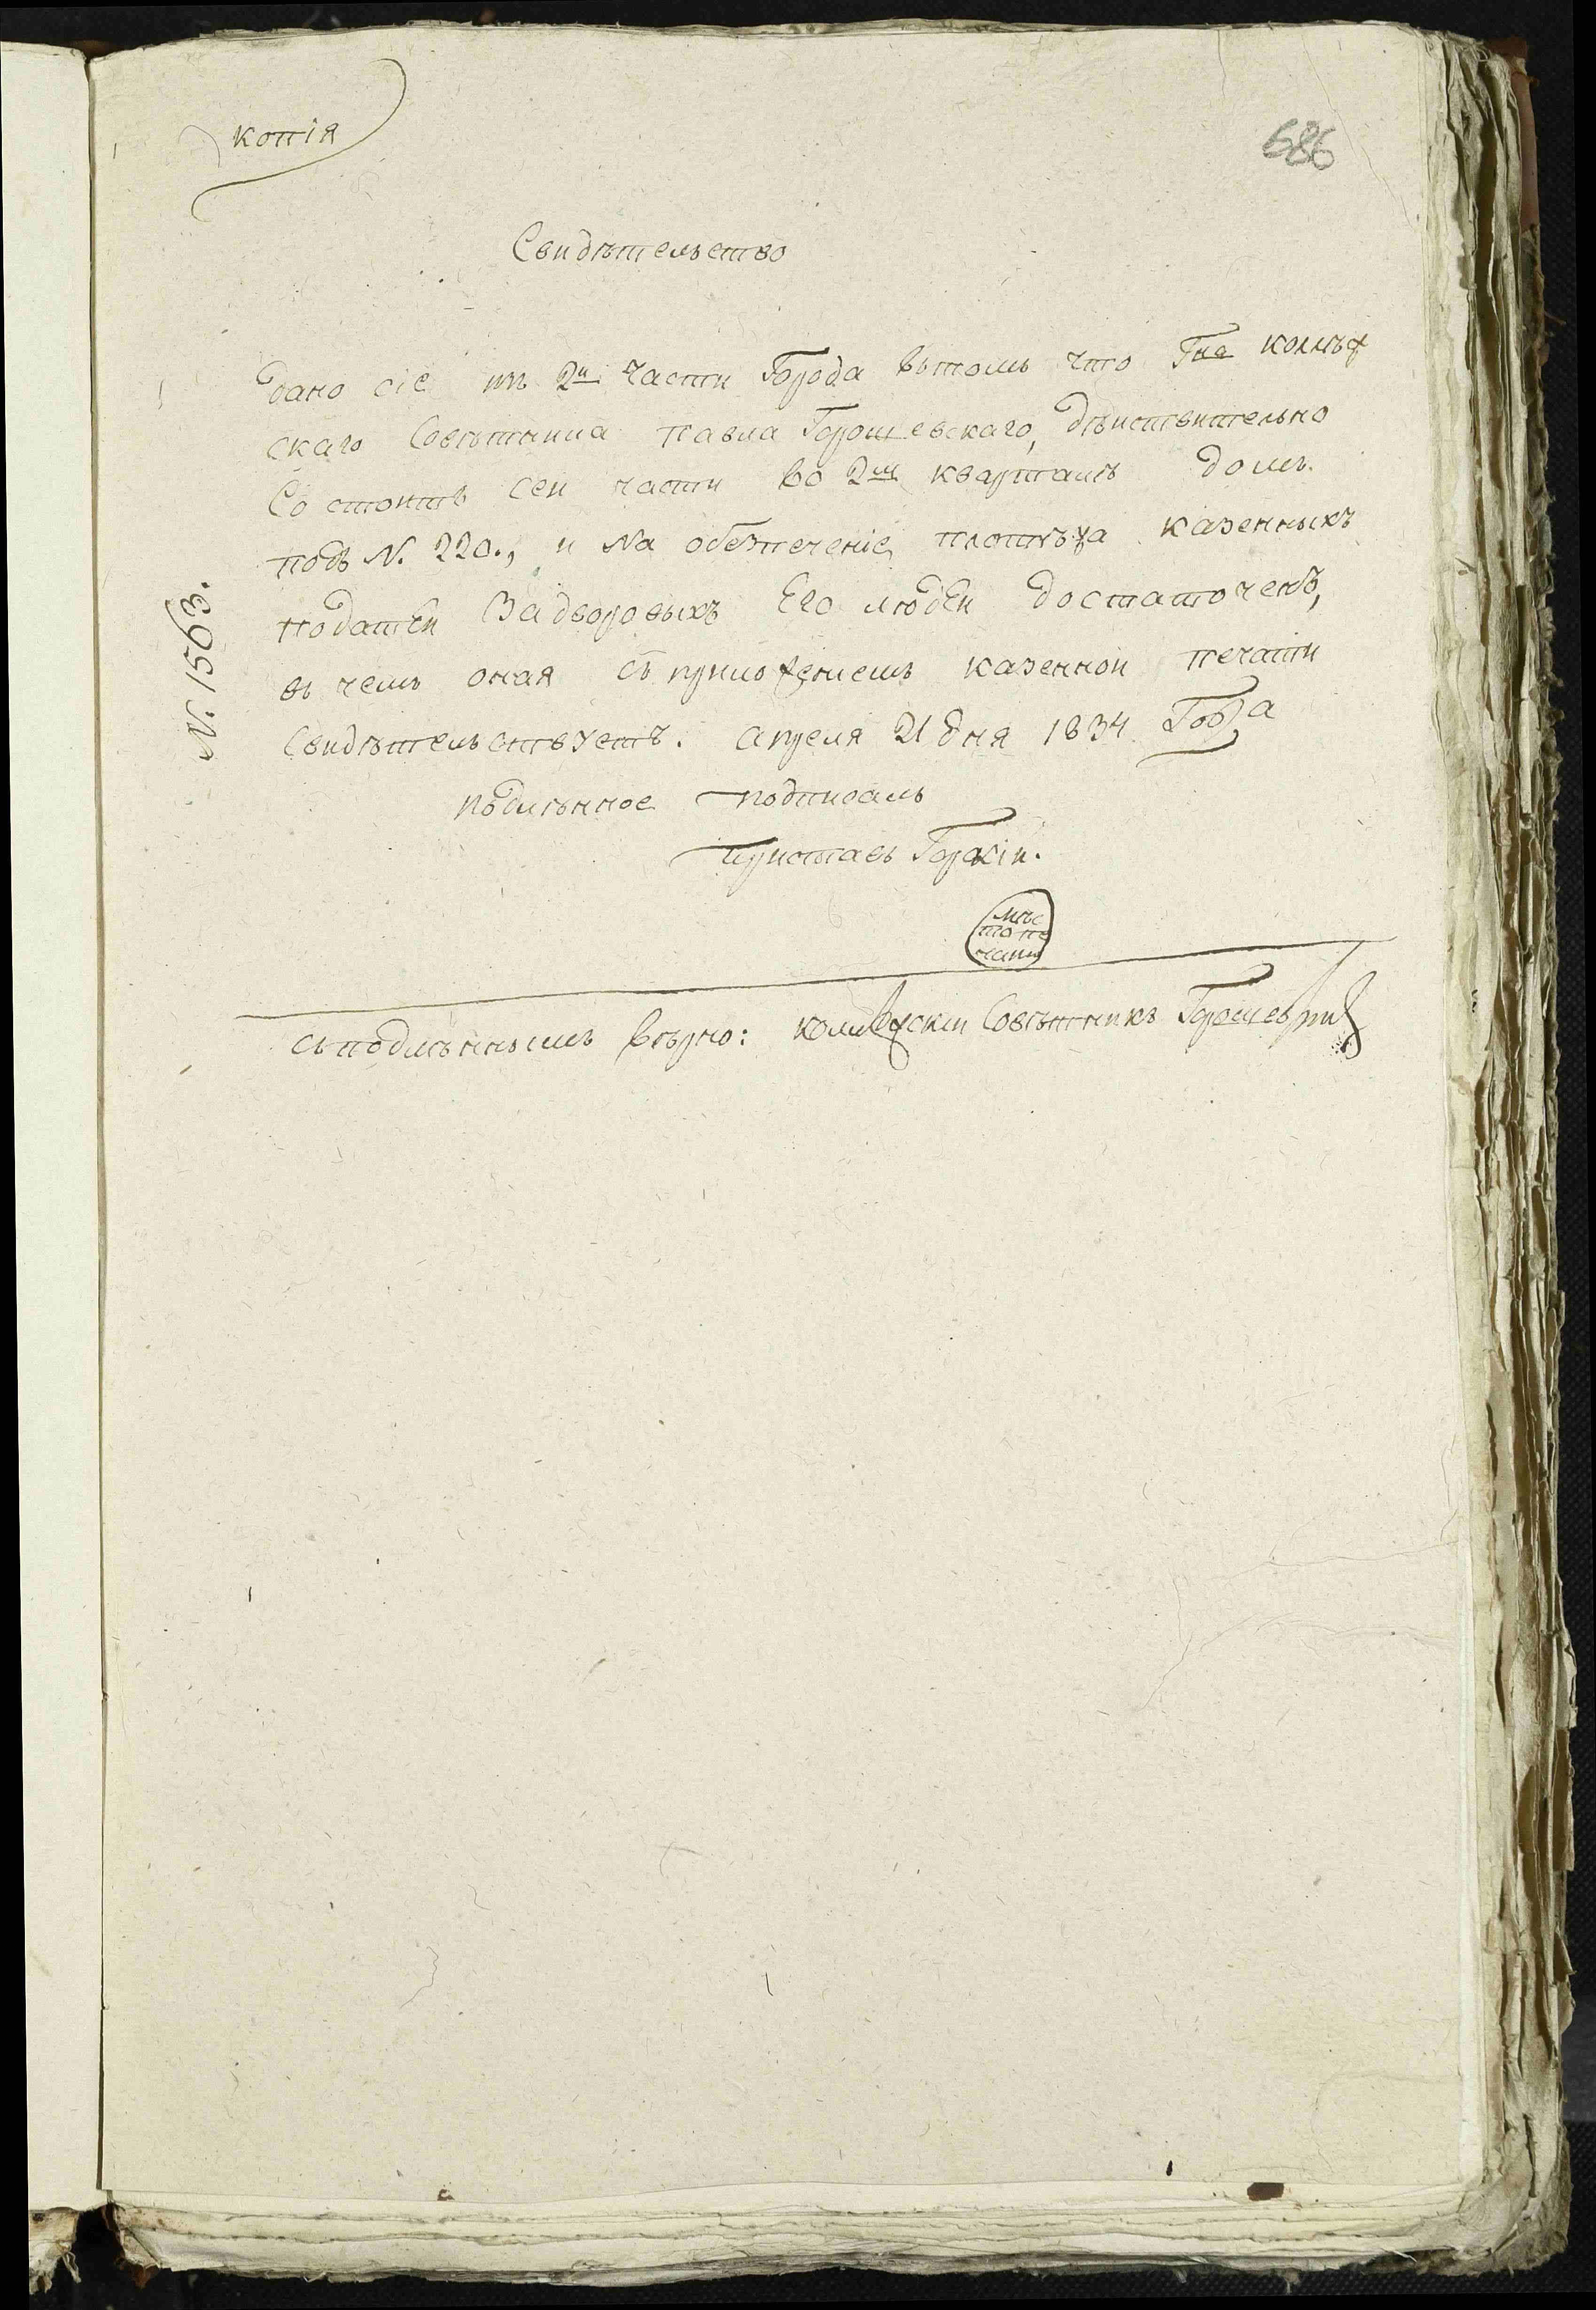 копія
686
Свидѣтельство
дано сіе изъ 2й Части Города вътомъ что Гна коллѣж
скаго Совѣтника павла Горошевскаго, дѣиствительно
Состоитъ сеи части во 2мъ кварталѣ домъ
подъ N. 220., и на обезпеченіе платѣжа казенныхъ
податеи Задворовыхъ Его людеи достаточенъ,
въ чемъ оная съ приложениемъ казеннои печати
свидѣтельствуетъ. апреля 21 дня 1834 Года
N. 1563.
подлѣнное подписалъ
приставъ Горскіи.
мѣс
то пе
чати
съподлѣннымъ вѣрно: коллежскіи Совѣтникъ